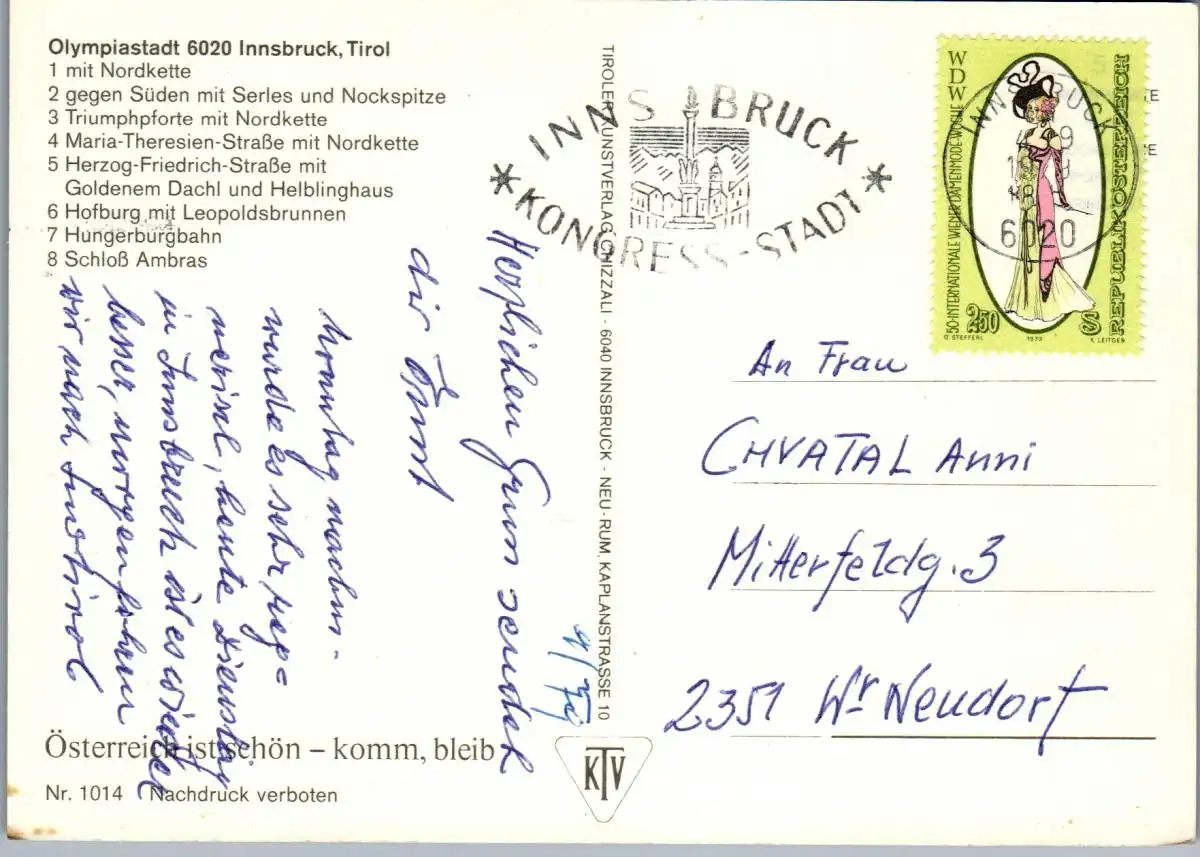 Olympiastadt 6020 Innsbruck, Tirol
1 mit Nordkette
2 gegen Süden mit Serles und Nockspitze
3 Triumphpforte mit Nordkette
4 Maria-Theresien-Straße mit Nordkette
5 Herzog-Friedrich-Straße mit
Goldenem Dachl und Helblinghaus
6 Hofburg mit Leopoldsbrunnen
7 Hungerburgbahn
8 Schloß Ambras
Herzlichen Gruss sendet
dir Ernst
wurde es sehr reg=
nerisch, heute Dienstag
in Innsbruck ist es wieder
besser, morgen fahren
wir nach Südtirol
Österreich ist schön – komm, bleib
Nr. 1014 Nachdruck verboten
TIROLER KUNSTVERLAG CHIZZALI - 6040 INNSBRUCK - NEU-RUM, KAPLANSTRASSE 10
KTV
INNSBRUCK
KONGRESS-STADT
WDW
50-INTERNATIONALE WIENER DAMENMODE-WOCHE
REPUBLIK ÖSTERREICH
S 2.50
O. STEFFERL 1970 K. LEITGEB
INNSBRUCK
6020
An Frau
CHVATAL Anni
Mitterfeldg. 3
2351 Wr Neudorf